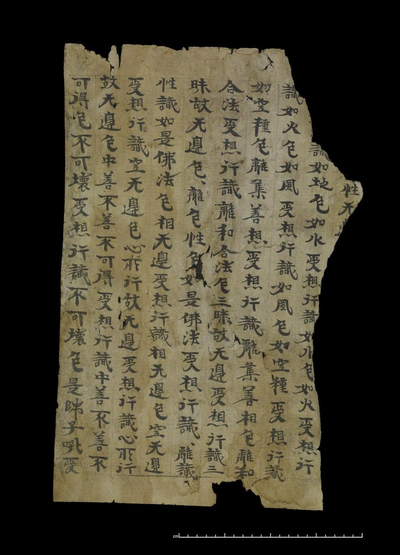 性无
識如地色如水受想行識如水色如火受想行
識如火色如風受想行識如風色如空種受想行識
如空種色離集善想受想行識離集善相色離和
合法受想行識離和合法色三昧故无邊受想行識三
昧故无邊色離色性色如是佛法受想行識離識
性識如是佛法色相无邊受想行識相无邊色空无邊
受想行識空无邊色心所行故无邊受想行識心所行
故无邊色中善不善不可得受想行識中善不善不
可得色不可壞受想行識不可壞色是師子吼受